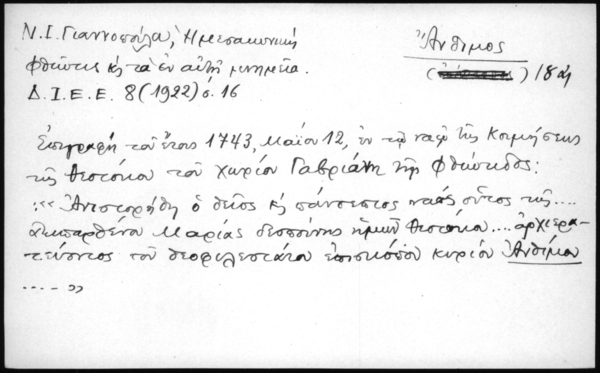 Ν. Ι. Γιαννοπούλα, Ἡ μεσαιωνικὴ
Φθιῶτις κ τὰ ἐν αὐτῇ μνημεῖα.
Δ. Ι. Ε. Ε. 8 (1922) σ. 16
Ἄνθιμος
( ) 18 αἰ
Ἐπιγραφὴ τοῦ ἔτους 1743, Μαΐου 12, ἐν τῷ ναῷ τῆς Κοιμήσεως
τῆς Θεοτόκου τοῦ χωρίου Γαβριάνη τῆς Φθιώτιδος:
:" Ἀνιστορήθη ὁ θεῖος κ πάνσεπτος ναὸς οὗτος τῆς ....
ἀειπαρθένου Μαρίας δεσποίνης ἡμῶν Θεοτόκου.... ἀρχιερα-
τεύοντος τοῦ θεοφιλεστάτου ἐπισκόπου κυρίου Ἀνθίμου
..... "